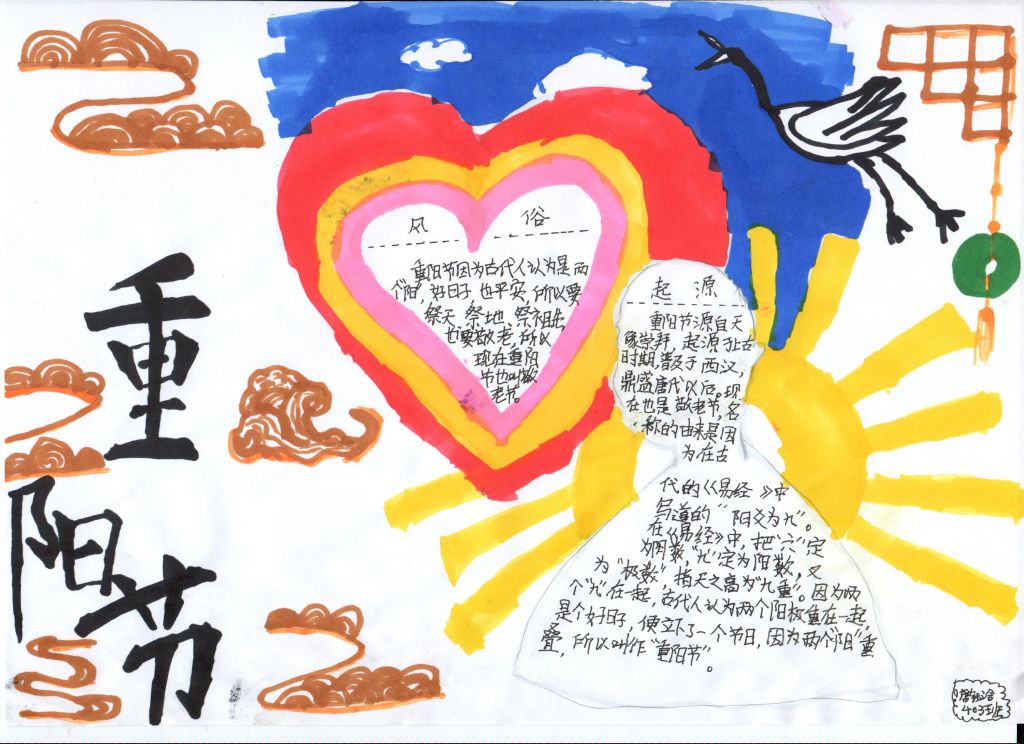 重
阳
节
风 俗
重阳节因为古代人认为是两
个"阳",好日子,也平安,所以要
祭天,祭地,祭祖先,
也要敬老,所以
现在重阳
节也叫敬
老节。
起 源
重阳节源自天
象崇拜,起源于上古
时期,普及于西汉,
鼎盛唐代以后。现
在也是敬老节,名
称的由来是因
为在古
代的《易经》中
写道的"阳爻为九"。
在《易经》中,把"六"定
为阴数,"九"定为阳数,又
为"极数",指天之高为"九重"。因为两
个"九"在一起,古代人认为两个阳极重在一起,
是个好日子,便立下了一个节日,因为两个"阳"重
叠,所以叫作"重阳节"。
403班